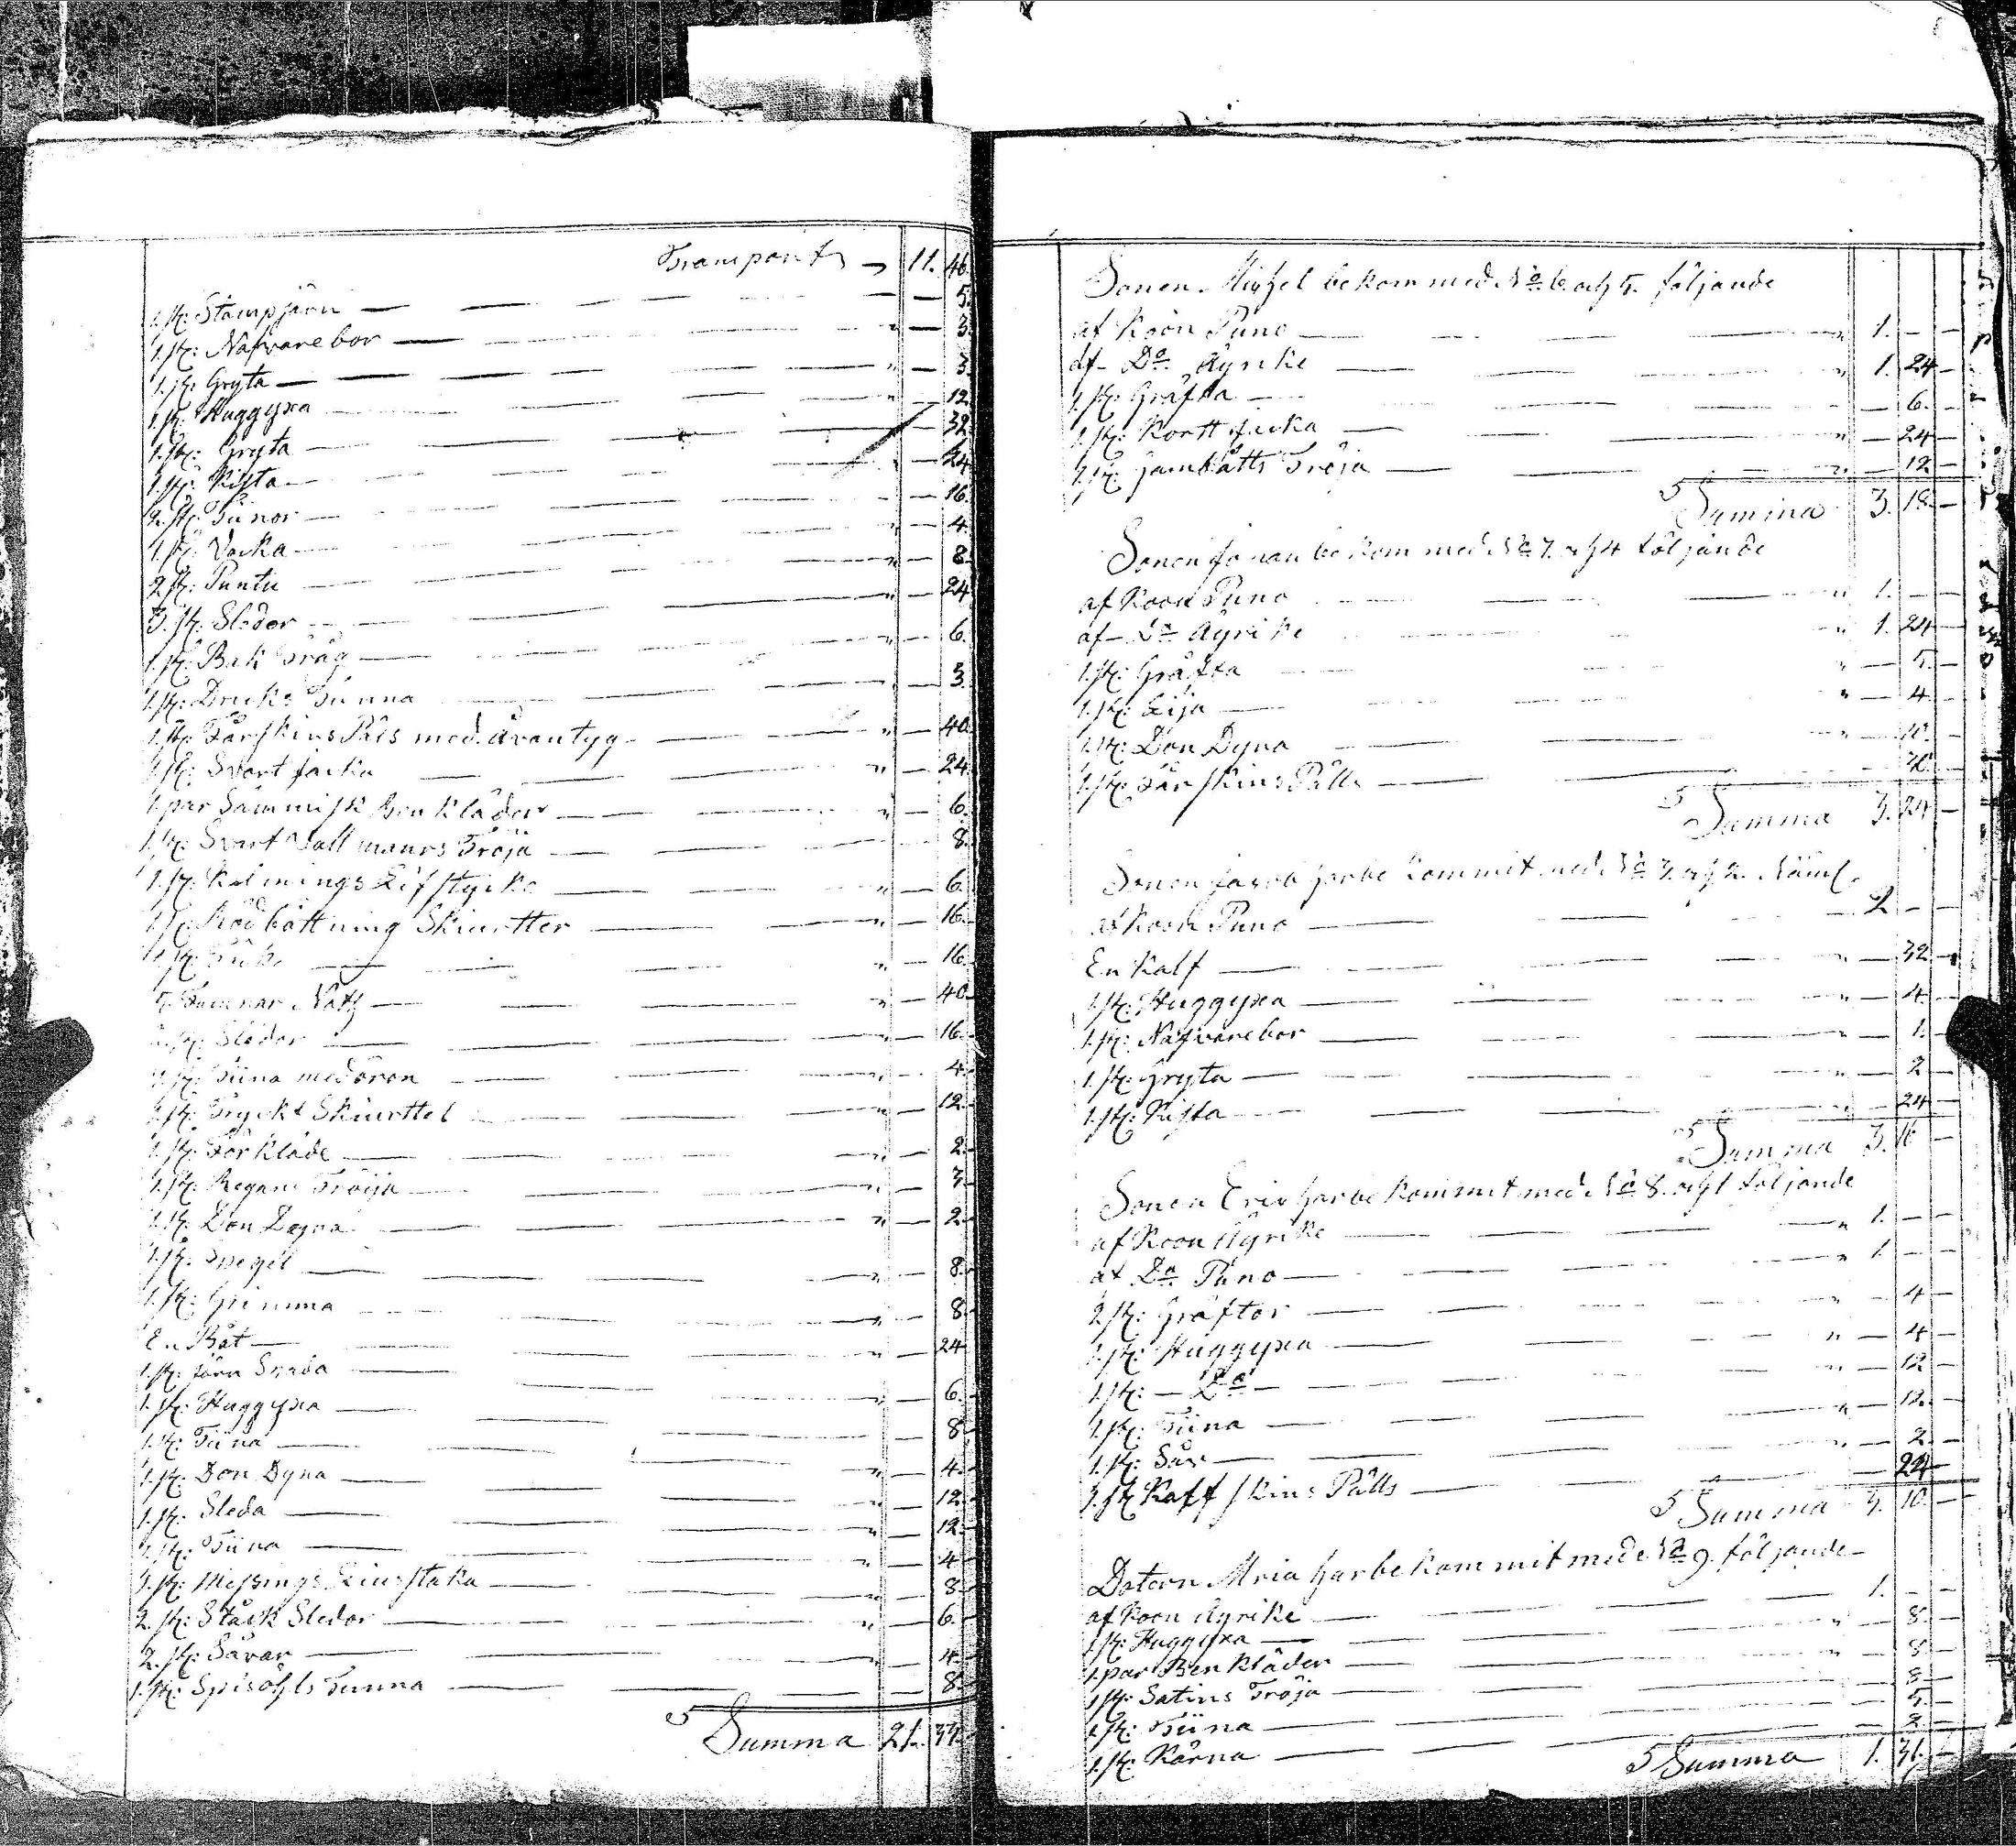 Transport 11. 46.
1. st: Stampjärn — 5.
1. st: Nafvare bor — 3.
1. st: Gryta — 3.
1. st: Huggyxa — 12.
1. st: Gryta — 32.
1. st: Kista — 24.
2. st: Tünor — 16.
1. st: Vacka — 4.
2. st: Puntu — 8.
3. st: Slédor — 24.
1. st: Bak Tråg — 6.
1. st: Dricks Tunna — 3.
1. st: Fårskins Päls med åvantyg — 40.
1. st: Svart jacka — 24.
1. par Sämmisk Benkläder — 6.
1. st: Svart Vallmanrs Tröja — 8.
1. st: Kalmings Lifstycke — 6.
1. st: Röd båttning Skiurtter — 16.
1. st: — 16.
5. Famnar Nätz — 40.
st: Slédor — 16.
1. st: Tiina med öron — 4.
1. st: Tryckt Skiurttel — 12.
1. st: Förkläde — 2.
1. st: Tröija — 3.
1. st: Don Dyna — 2.
1. st: Spegel — 8.
1. st: Grimma — 8.
En Båt — 24.
1. st: järn Spada — 6.
1. st: Huggyxa — 8.
1. st: Tiina — 4.
1. st: Don Dyna — 12.
1. st: Sleda — 12.
1. st: Tiina — 4.
1. st: Messings Liusstaka — 8.
2. st: Stäck Sledor — 6.
2. st: Såvar — 4.
1. st: Spisöhls Tunna — 8.
Summa 21. 33.
Sonen Michel bekom med No 6. och 5. följande
af Koon Puno — 1. — —
af — Do Äyrike — 1. 24 —
1. st: Gräfta — 6. —
1. st: Kortt jacka — 24 —
1. st: Tröja — 12 —
Summa 3. 18. —
Sonen johan bekom med No 7. och 4 följande
af Koon Puno — 1. — —
af — Do Äyrike — 1. 24 —
1. st: Gräfta — 5. —
1. st: Lija — 4 —
1. st: Don Dyna —
1. st: Fårskins Pälls —
Summa 3. 24 —
Sonen jacob har bekommit med No 3. och 2. Näml.
af Koon Puno — 2 — —
En Kalf — 32 —
1. st: Huggyxa — 4 —
1. st: Nafvarebor — 1. —
1. st: Gryta — 2 —
1. st: Kista — 24 —
Summa 3. 16 —
Sonen Eric har bekommit med No 8. och 1 följande
af Koon Äyrike — 1. — —
af Do Puno — 1. — —
2. st: Gräftor — 4 —
1. st: Huggyxa — 4 —
1. st: — Do — 12 —
1. st: Tiina — 12. —
1. st: Såv — 2. —
1. st: Kalfskins Pälls — 24 —
Summa 3. 10. —
Dotern Mria har bekommit med No 9. följande
af Koon Äyrike — 1. — —
1. st: Huggyxa — 8. —
1. par Ben Kläder — 8. —
1. st: Satins Tröja — 8 —
1. st: Tiina — 5. —
1. st: Kärna — 2. —
Summa 1. 31. —